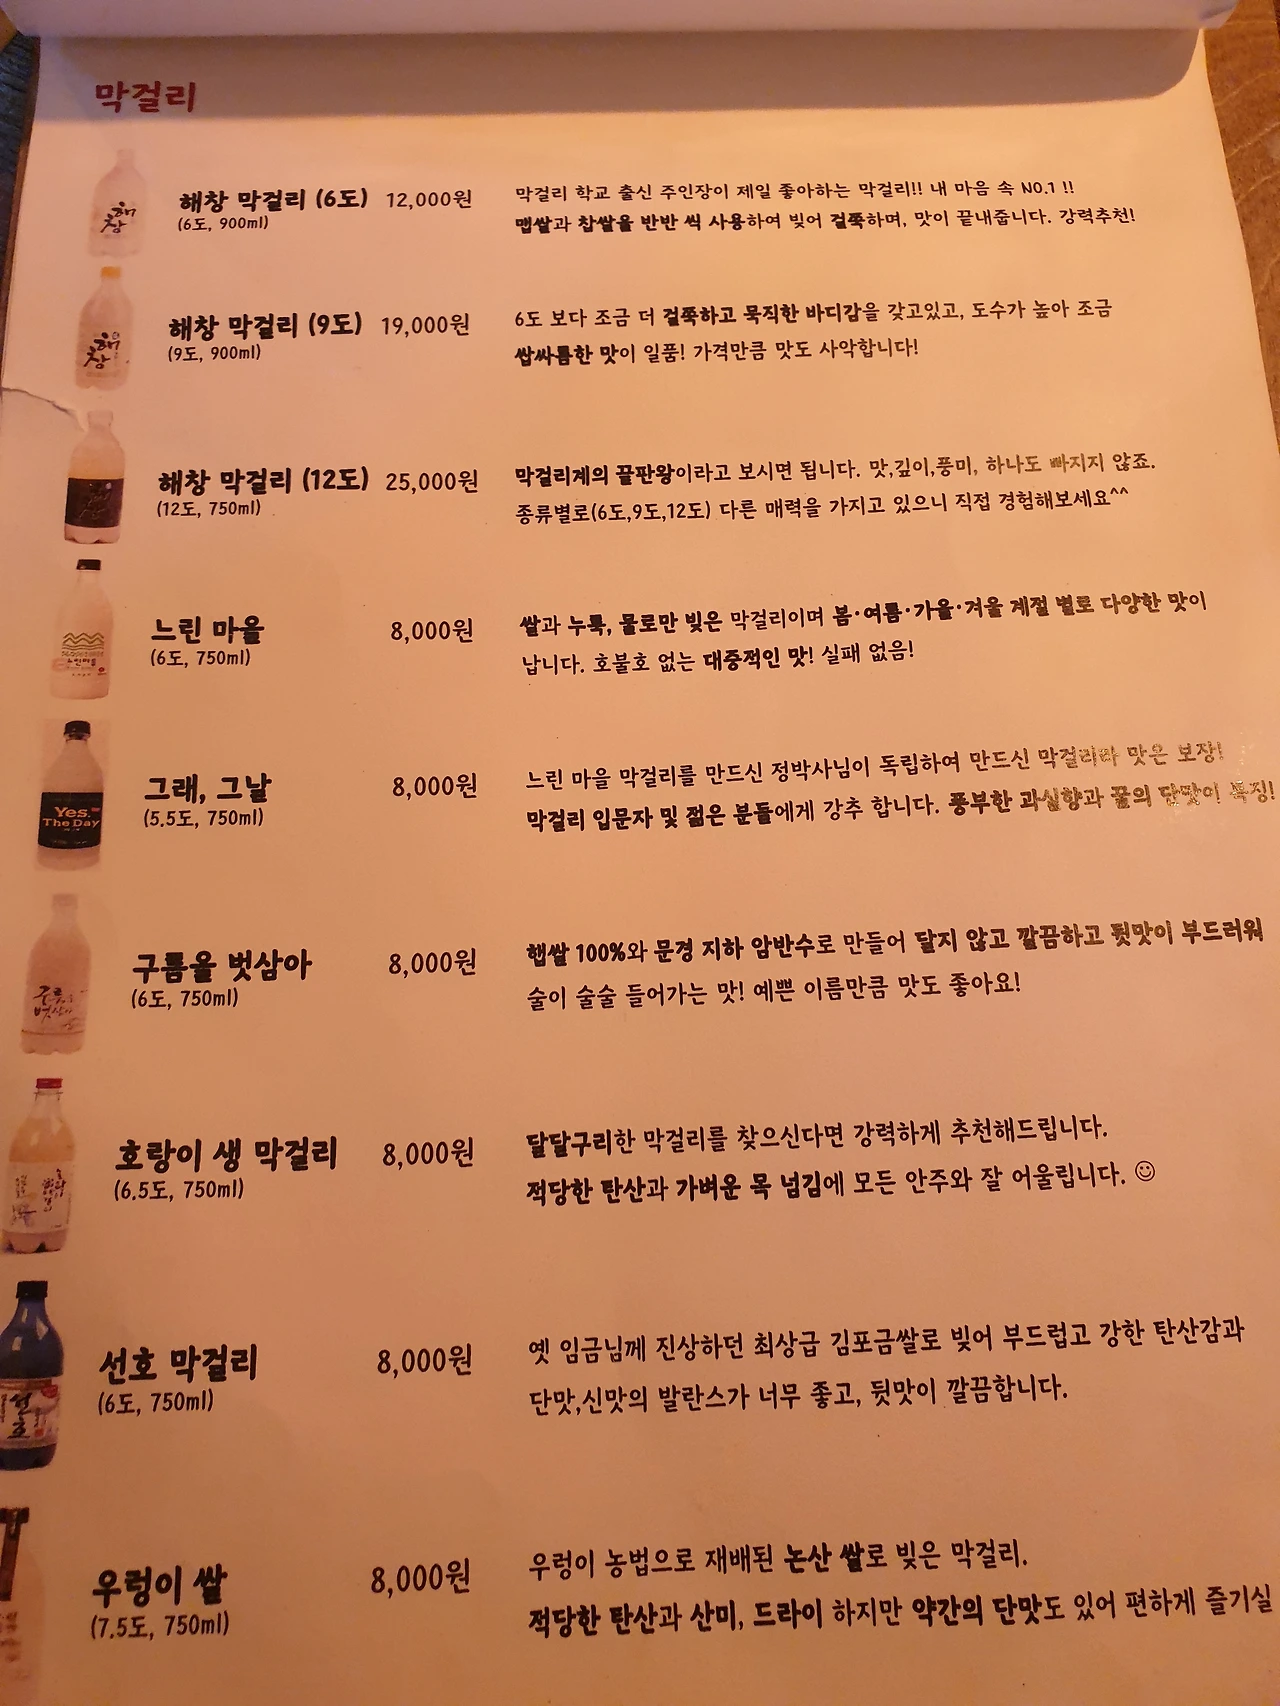 막걸리
해창 막걸리 (6도) 12,000원
(6도, 900ml)
막걸리 학교 출신 주인장이 제일 좋아하는 막걸리!! 내 마음 속 NO.1 !!
맵쌀과 찹쌀을 반반 씩 사용하여 빚어 걸쭉하며, 맛이 끝내줍니다. 강력추천!
해창 막걸리 (9도) 19,000원
(9도, 900ml)
6도 보다 조금 더 걸쭉하고 묵직한 바디감을 갖고있고, 도수가 높아 조금
쌉싸름한 맛이 일품! 가격만큼 맛도 사악합니다!
해창 막걸리 (12도) 25,000원
(12도, 750ml)
막걸리계의 끝판왕이라고 보시면 됩니다. 맛,깊이,풍미, 하나도 빠지지 않죠.
종류별로(6도,9도,12도) 다른 매력을 가지고 있으니 직접 경험해보세요^^
느린 마을 8,000원
(6도, 750ml)
쌀과 누룩, 물로만 빚은 막걸리이며 봄·여름·가을·겨울 계절 별로 다양한 맛이
납니다. 호불호 없는 대중적인 맛! 실패 없음!
Yes.
The Day
그래, 그날 8,000원
(5.5도, 750ml)
느린 마을 막걸리를 만드신 정박사님이 독립하여 만드신 막걸리라 맛은 보장!
막걸리 입문자 및 젊은 분들에게 강추 합니다. 풍부한 과실향과 꿀의 단맛이 특징!
구름을 벗삼아 8,000원
(6도, 750ml)
햅쌀 100%와 문경 지하 암반수로 만들어 달지 않고 깔끔하고 뒷맛이 부드러워
술이 술술 들어가는 맛! 예쁜 이름만큼 맛도 좋아요!
호랑이 생 막걸리 8,000원
(6.5도, 750ml)
달달구리한 막걸리를 찾으신다면 강력하게 추천해드립니다.
적당한 탄산과 가벼운 목 넘김에 모든 안주와 잘 어울립니다. ☺
선호 막걸리 8,000원
(6도, 750ml)
옛 임금님께 진상하던 최상급 김포금쌀로 빚어 부드럽고 강한 탄산감과
단맛,신맛의 발란스가 너무 좋고, 뒷맛이 깔끔합니다.
우렁이 쌀 8,000원
(7.5도, 750ml)
우렁이 농법으로 재배된 논산 쌀로 빚은 막걸리.
적당한 탄산과 산미, 드라이 하지만 약간의 단맛도 있어 편하게 즐기실